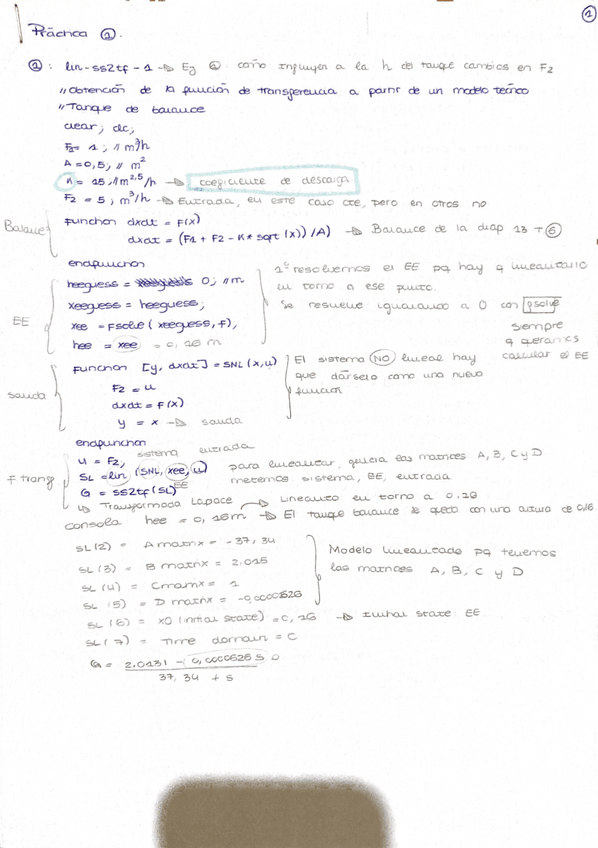 1
Práctica 1.
1: lin-ss2tf-1 → Ej 1 como influyen a la h del tanque cambios en F2
// Obtención de la función de transferencia a partir de un modelo teórico
// Tanque de balance
clear; clc;
F1 = 1; // m3/h
A = 0,5; // m2
K = 15; // m2,5/h → coeficiente de descarga
F2 = 5; m3/h → Entrada, en este caso cte, pero en otros no
Balance
function dxdt = F(x)
dxdt = (F1 + F2 - K * sqrt(x)) / A) → Balance de la diap 13 T 6
endfunction
EE
heeguess = 0; // m
xeeguess = heeguess;
xee = fsolve (xeeguess, f),
hee = xee = 0,16 m
1º resolvemos el EE pq hay q linealizarlo
en torno a ese punto.
Se resuelve igualando a 0 con fsolve
siempre
q queramos
calcular el EE
salida
function [y, dxdt] = SNL (x,u)
F2 = u
dxdt = f(x)
y = x → salida
endfunction
El sistema NO lineal hay
que dárselo como una nueva
función
F trans
sistema entrada
u = F2,
SL = lin (SNL, xee, u) para linealizar, quería las matrices A, B, C y D
EE
metemos sistema, EE, entrada
G = ss2tf (SL)
↳ Transformada Laplace → Linealizo en torno a 0.16
consola hee = 0,16m → El tanque balance se queda con una altura de 0,16
SL(2) = A matrix = -37,34
SL(3) = B matrix = 2,015
SL(4) = C matrix = 1
SL(5) = D matrix = -0,0000626
SL(6) = X0 (initial state) = 0,16 → Initial state EE
SL(7) = Time domain = C
Modelo linealizado pq tenemos
las matrices A, B, C y D
G = 2,0131 - 0,0000626 s 0
37,34 + s